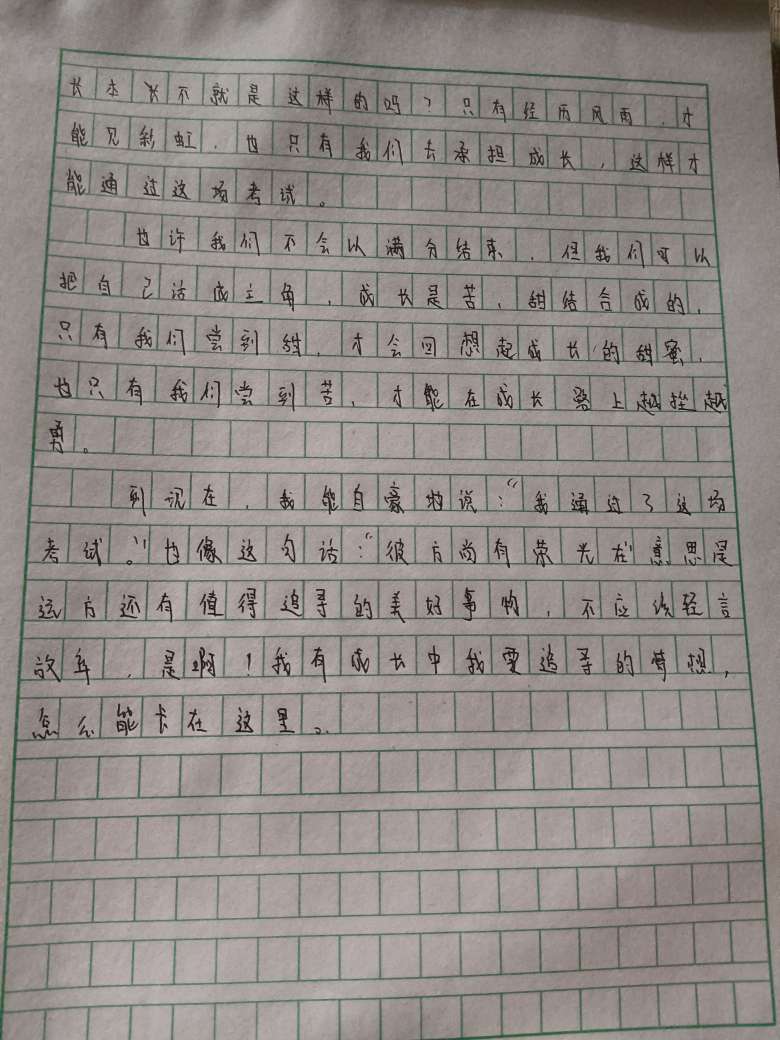 长本长不就是这样的吗？只有经历风雨，才
能见彩虹，也只有我们去承担成长，这样才
能通过这场考试。
也许我们不会以满分结束，但我们可以
把自己活成主角，成长是苦，甜结合成的，
只有我们尝到甜，才会回想起成长的甜蜜，
也只有我们尝到苦，才能在成长路上越挫越
勇。
到现在，我能自豪地说：“我通过了这场
考试。”也像这句话：“彼方尚有荣光在”意思是
远方还有值得追寻的美好事物，不应该轻言
放弃，是啊！我有成长中我要追寻的梦想，
怎么能卡在这里。